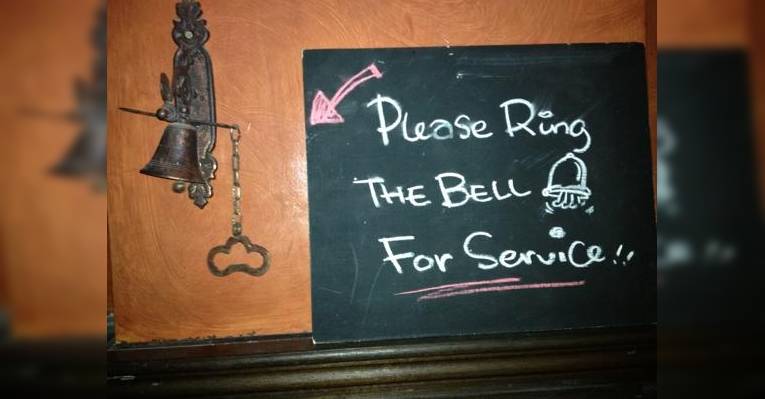 Please Ring
THE BELL
For Service!!